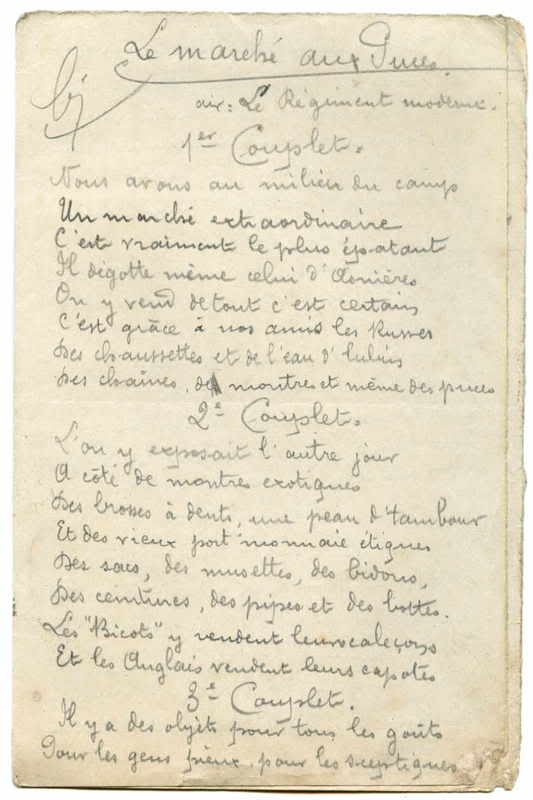 Le marché aux Puces.
bis
air: Le Régiment moderne.
1er Couplet.
Nous avons au milieu du camp
Un marché extraordinaire
C'est vraiment le plus épatant
Il dégotte même celui d'Asnières
On y vend de tout c'est certain
C'est grâce à nos amis les Russes
Des chaussettes et de l'eau d'lubin
Des chaînes, des montres et même des puces
2e Couplet.
L'on y exposait l'autre jour
A côté de montres exotiques
Des brosses à dents, une peau d'tambour
Et des vieux port'monnaie étiques
Des sacs, des musettes, des bidons,
Des ceintures, des pipes et des bottes.
Les "Bicots" y vendent leurs caleçons
Et les Anglais vendent leurs capotes
3e Couplet.
Il y a des objets pour tous les goûts
Pour les gens pieux, pour les sceptiques